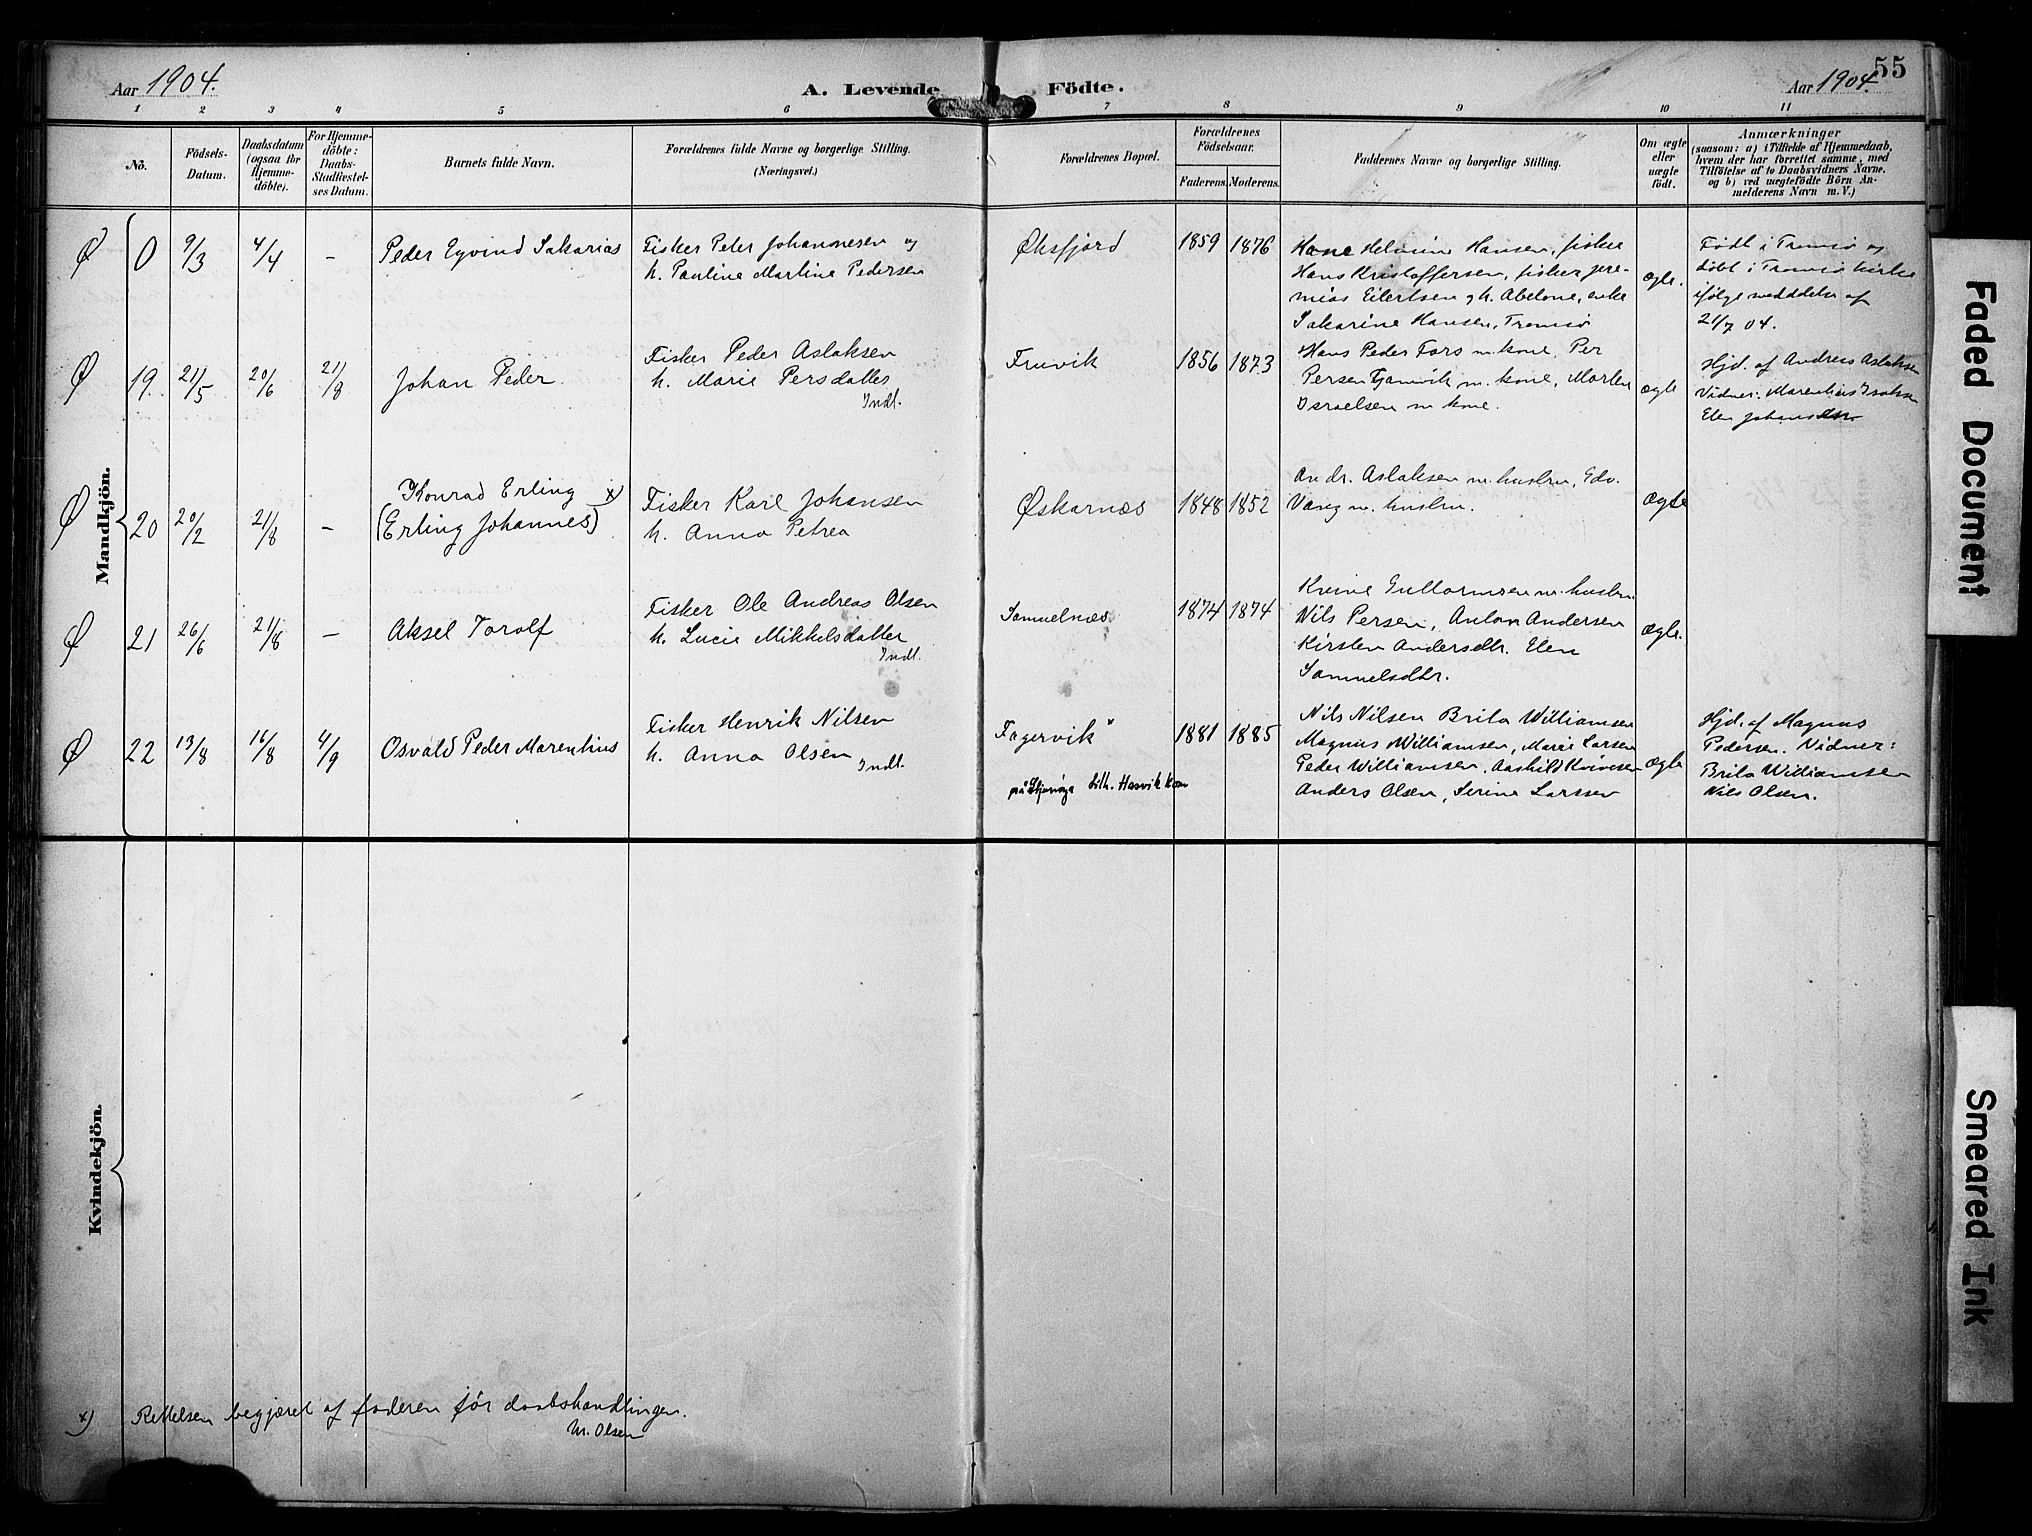 Aar 1904.
A. Levende Födte.
Aar 1904.
55
1 2 3 4 5 6 7 8 9 10 11
Nö.
Födsels-
Datum.
Daabsdatum
(ogsaa for
Hjemme-
döbte).
For Hjemme-
döbte:
Daabs-
Stadfæstel-
ses Datum.
Barnets fulde Navn.
Forældrenes fulde Navne og borgerlige Stilling.
(Næringsvei.)
Forældrenes Bopæl.
Forældrenes
Födselsaar.
Faderens. Moderens.
Faddernes Navne og borgerlige Stilling.
Om ægte
eller
uægte
født.
Anmærkninger
(saasom: a) i Tilfælde af Hjemmedaab,
hvem der har forrettet samme, med
Tilföielse af to Daabsvidners Navne.
og b) ved uægtefödte Börn An-
melderens Navn m. V.)
Mandkjön.
Ø 0 9/3 4/4 – Peder Eyvind Sakarias
Fisker Peter Johannesen og
h. Pauline Martine Pedersen
Øksfjord 1859 1876
Kone Helmine Hansen, fisker
Hans Kristoffersen, fisker Jere-
mias Eilertsen og h. Abelone, enke
Sakarine Hansen, Tromsø
ægte.
Født i Tromsø og
døbt i Tromsø kirke
ifølge meddelse af
21/7 04.
Ø 19. 21/5 20/6 21/8 Johan Peder.
Fisker Peder Aslaksen
h. Marie Persdatter
Indl.
Truvik 1856 1873
Hans Peder Fors m. kone, Per
Persen Tjamvik m. kone, Morten
Israelsen m. kone.
ægte
Hjd. af Andreas Aslaksen
Vidner: Marenhius Isaksen
Elen Johansdtr.
Ø 20 20/2 21/8 –
Konrad Erling x)
(Erling Johannes)
Fisker Karl Johansen
h. Anna Petrea
Øskarnæs 1848 1852
Andr. Aslaksen m. hustru, Edv.
Vang m. hustru.
ægte
Ø 21 26/6 21/8 – Aksel Torolf
Fisker Ole Andreas Olsen
h. Lucie Mikkelsdatter
Indl.
Samuelnæs 1874 1874
Kvine Guttormsen m. hustru.
Nils Persen, Anton Andersen
Kirsten Andersdtr. Elen
Samuelsdtr.
ægte.
Ø 22 13/8 16/8 4/9 Osvald Peder Marenhius
Fisker Henrik Nilsen
h. Anna Olsen
Indl.
Fagervik
på Stjernøya tilh. Hasvik kom
1881 1885
Nils Nilsen Brita Williamsen
Magnus Williamsen, Marie Larsen
Peder Williamsen, Aashild Kvivesen
Anders Olsen, Serine Larsen
ægte
Hjd. af Magnus
Pedersen. Vidner:
Brita Williamsen
Nils Olsen.
Kvindekjön.
x) Rettelsen begjæret af faderen før daabshandlingen.
M. Olsen
Faded Document
Smeared Ink